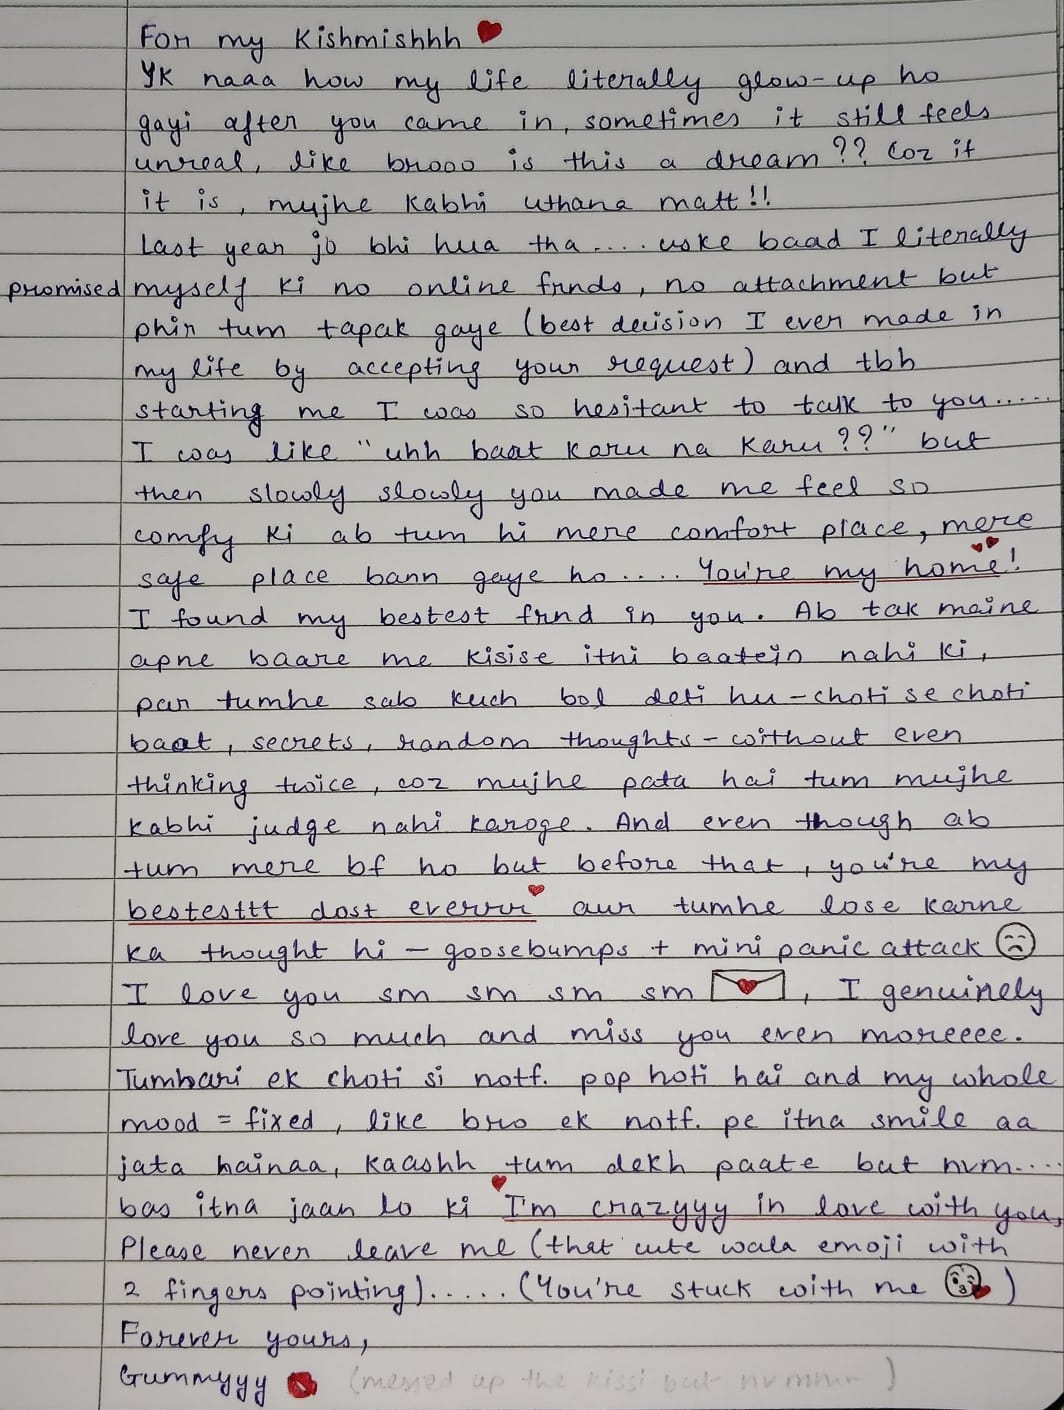 For my Kishmishhh ❤️
YK naaa how my life literally glow-up ho
gayi after you came in, sometimes it still feels
unreal, like brooo is this a dream?? Coz if
it is, mujhe kabhi uthana matt!!
Last year jo bhi hua tha .... uske baad I literally
promised myself ki no online frnds, no attachment but
phir tum tapak gaye (best decision I ever made in
my life by accepting your request) and tbh
starting me I was so hesitant to talk to you.....
I was like "uhh baat karu na karu??" but
then slowly slowly you made me feel so
comfy ki ab tum hi mere comfort place, mere
safe place bann gaye ho .... You're my home!
I found my bestest frnd in you. Ab tak maine
apne baare me kisise itni baatein nahi ki,
par tumhe sab kuch bol deti hu - choti se choti
baat, secrets, random thoughts - without even
thinking twice, coz mujhe pata hai tum mujhe
kabhi judge nahi karoge. And even though ab
tum mere bf ho but before that, you're my
bestesttt dost everrrr aur tumhe lose karne
ka thought hi - goosebumps + mini panic attack ☹️
I love you sm sm sm sm 💌, I genuinely
love you so much and miss you even moreeee.
Tumhari ek choti si notf. pop hoti hai and my whole
mood = fixed, like bro ek notf. pe itna smile aa
jata hainaa, kaashh tum dekh paate but nvm....
bas itna jaan lo ki I'm crazyyy in love with you,
Please never leave me (that cute wala emoji with
2 fingers pointing)..... (You're stuck with me 😘)
Forever yours,
Gummyyy 💋 (messed up the kissi but nvmmm)